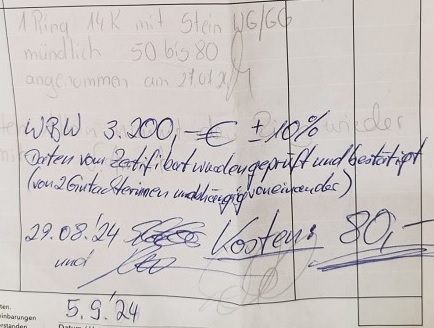 1 Ring 14K mit Stein WG/GG
mündlich 50 bis 80
angenommen am
WBW 3.200,-€ ±10%
Daten vom Zertifikat wurden geprüft und bestätigt
(von 2 Gutachterinnen unabhängig voneinander)
29.08.'24 Kosten: 80,-
und
ten.
inbarungen
rstanden
5.9.'24